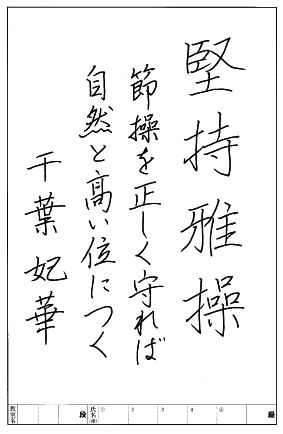 堅持雅操
節操を正しく守れば
自然と高い位につく
千葉妃華
教室名
段
氏名
級